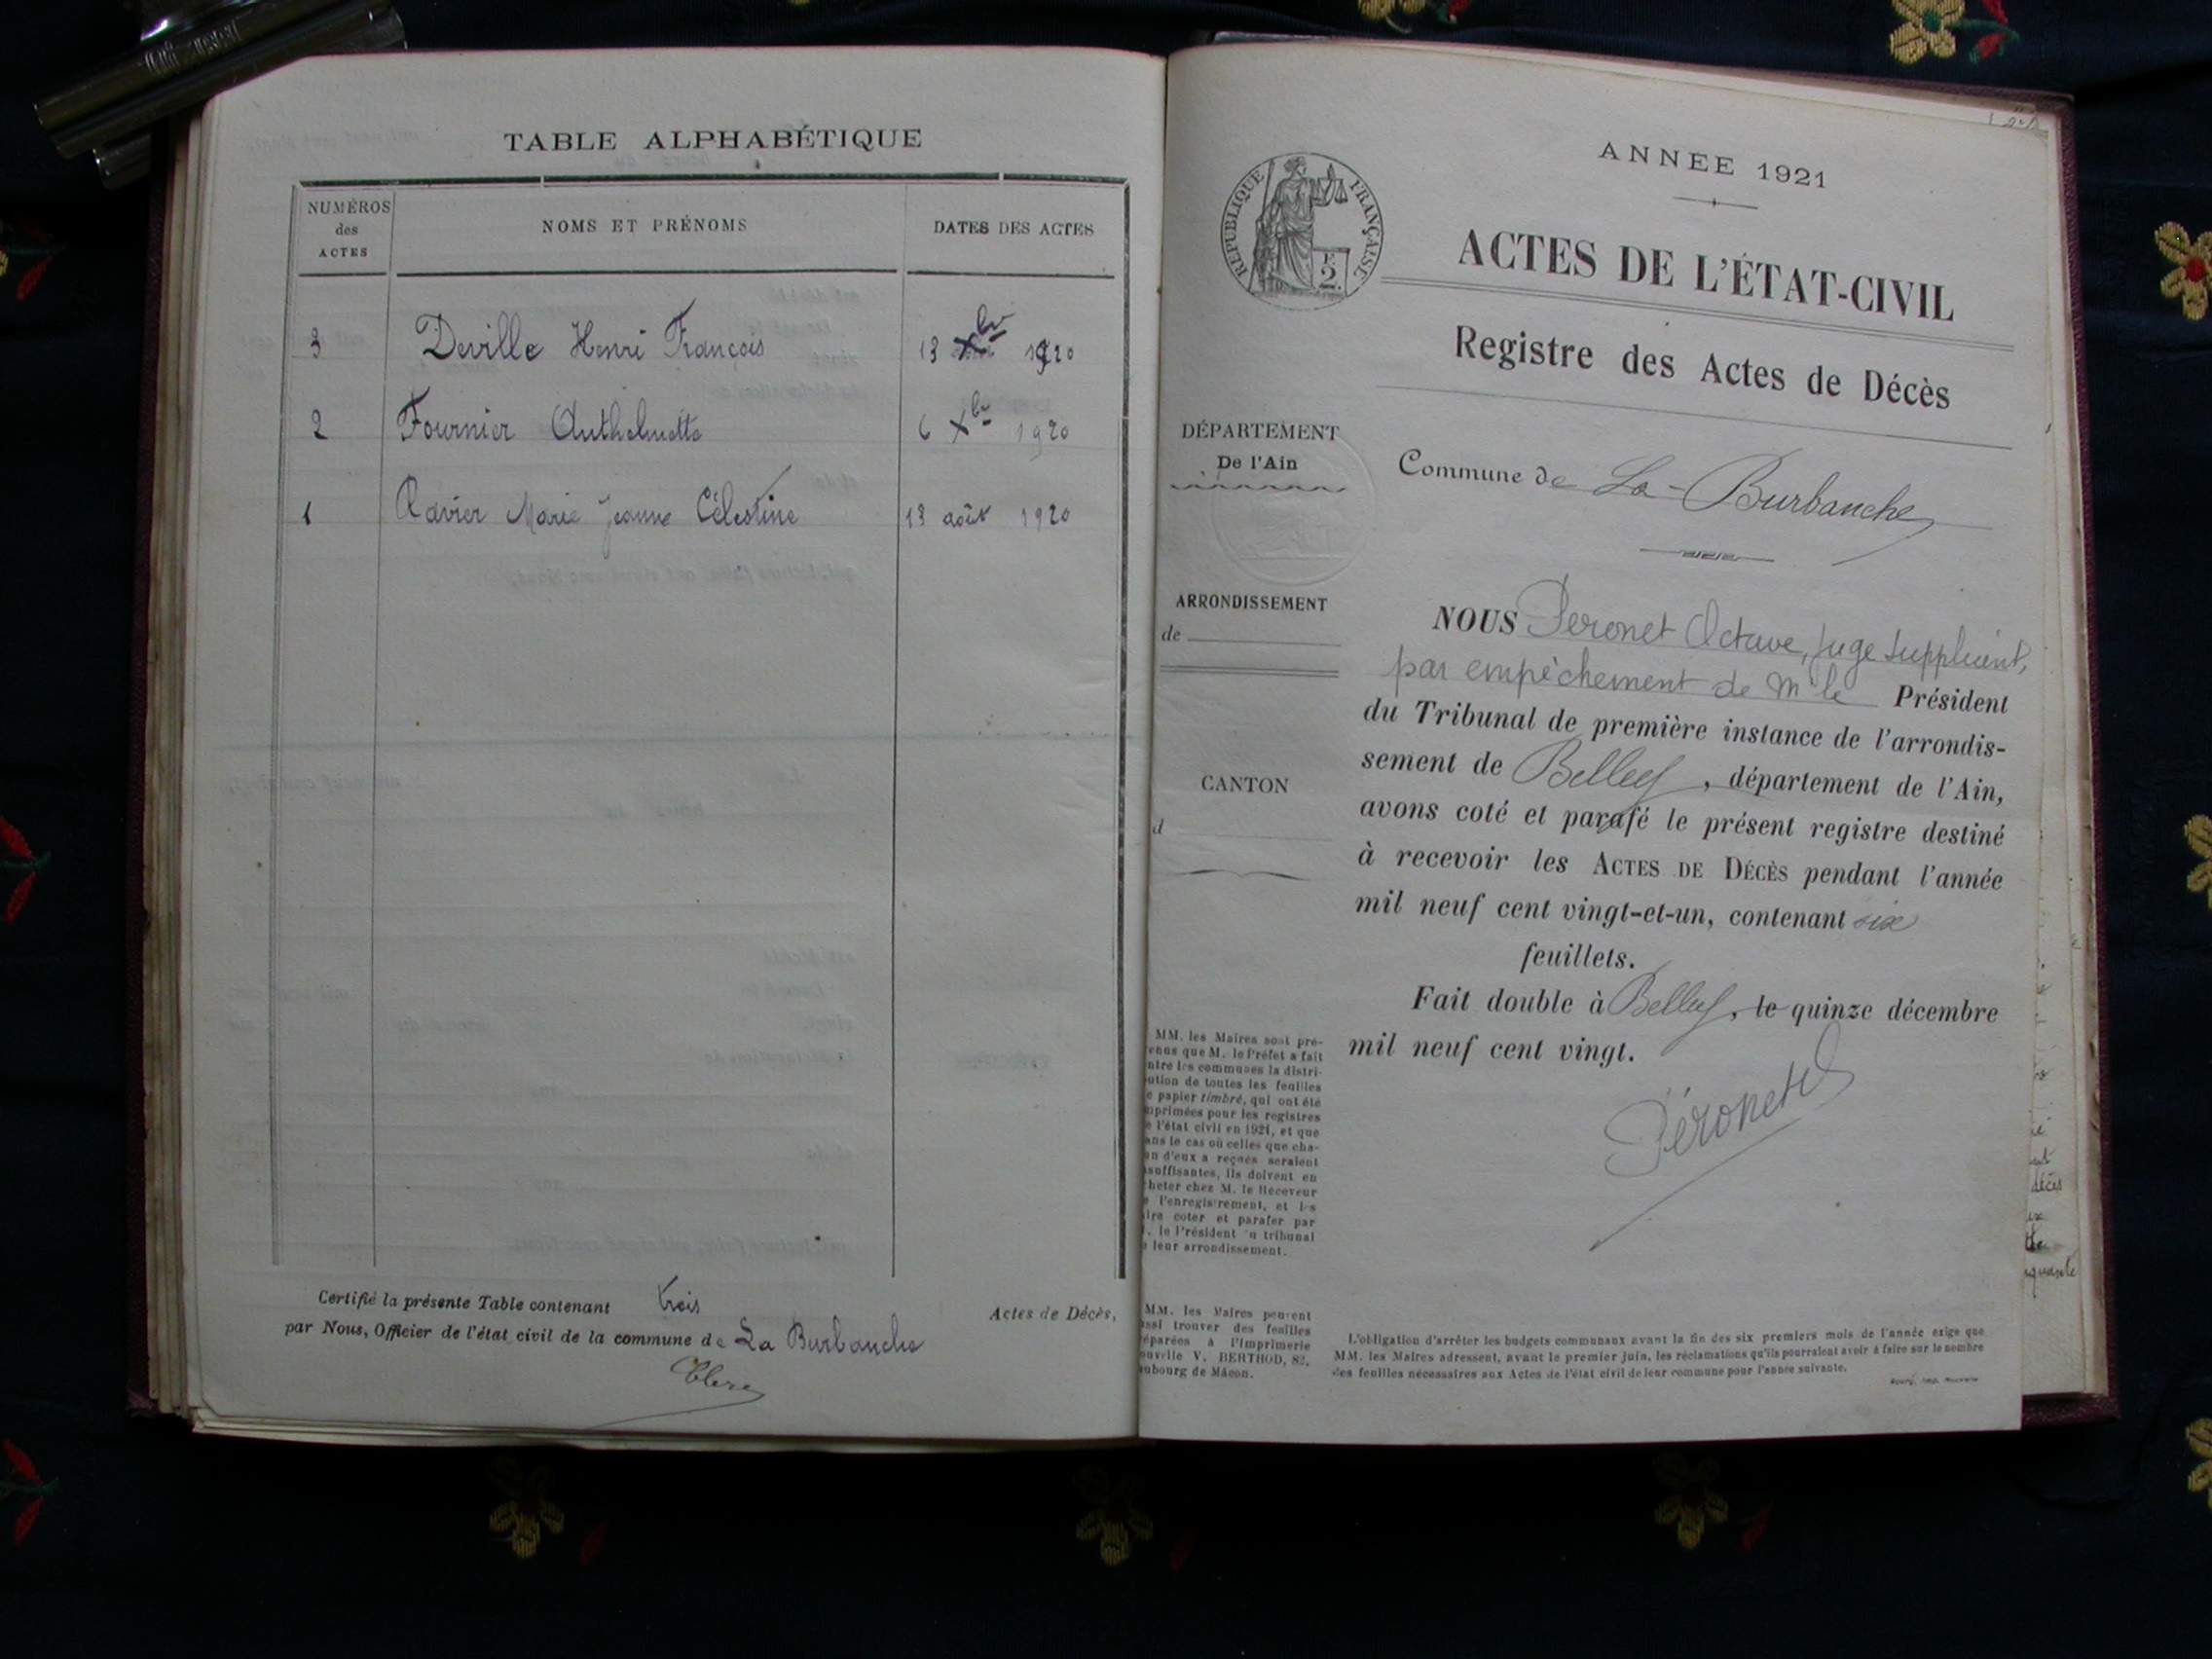 TABLE ALPHABÉTIQUE
NUMÉROS des ACTES
NOMS ET PRÉNOMS
DATES DES ACTES
3 Deville Henri François 13 Xbre 1920
2 Fournier Anthelmette 6 Xbre 1920
1 Ravier Marie Jeanne Célestine 13 août 1920
Certifié la présente Table contenant trois Actes de Décès,
par Nous, Officier de l'état civil de la commune de La Burbanche
ANNÉE 1921
RÉPUBLIQUE FRANÇAISE
F. 2
ACTES DE L'ÉTAT-CIVIL
Registre des Actes de Décès
DÉPARTEMENT
De l'Ain
Commune de La-Burbanche
ARRONDISSEMENT
de
CANTON
d
NOUS Peronet Octave, juge suppléant,
par empêchement de Mr le Président
du Tribunal de première instance de l'arrondis-
sement de Belley, département de l'Ain,
avons coté et parafé le présent registre destiné
à recevoir les ACTES DE DÉCÈS pendant l'année
mil neuf cent vingt-et-un, contenant six
feuillets.
Fait double à Belley, le quinze décembre
mil neuf cent vingt.
Péronet
MM. les Maires sont pré-
enus que M. le Préfet a fait
ntre les communes la distri-
ution de toutes les feuilles
e papier timbré, qui ont été
mprimées pour les registres
e l'état civil en 1921, et que
ans le cas où celles que cha-
un d'eux a reçues seraient
nsuffisantes, ils doivent en
cheter chez M. le Receveur
e l'enregistrement, et les
ire coter et parafer par
. le Président du tribunal
e leur arrondissement.
MM. les Maires peuvent
ussi trouver des feuilles
éparées à l'Imprimerie
ouvelle V. BERTHOD, 82,
aubourg de Mâcon.
L'obligation d'arrêter les budgets communaux avant la fin des six premiers mois de l'année exige que
MM. les Maires adressent, avant le premier juin, les réclamations qu'ils pourraient avoir à faire sur le nombre
des feuilles nécessaires aux Actes de l'état civil de leur commune pour l'année suivante.